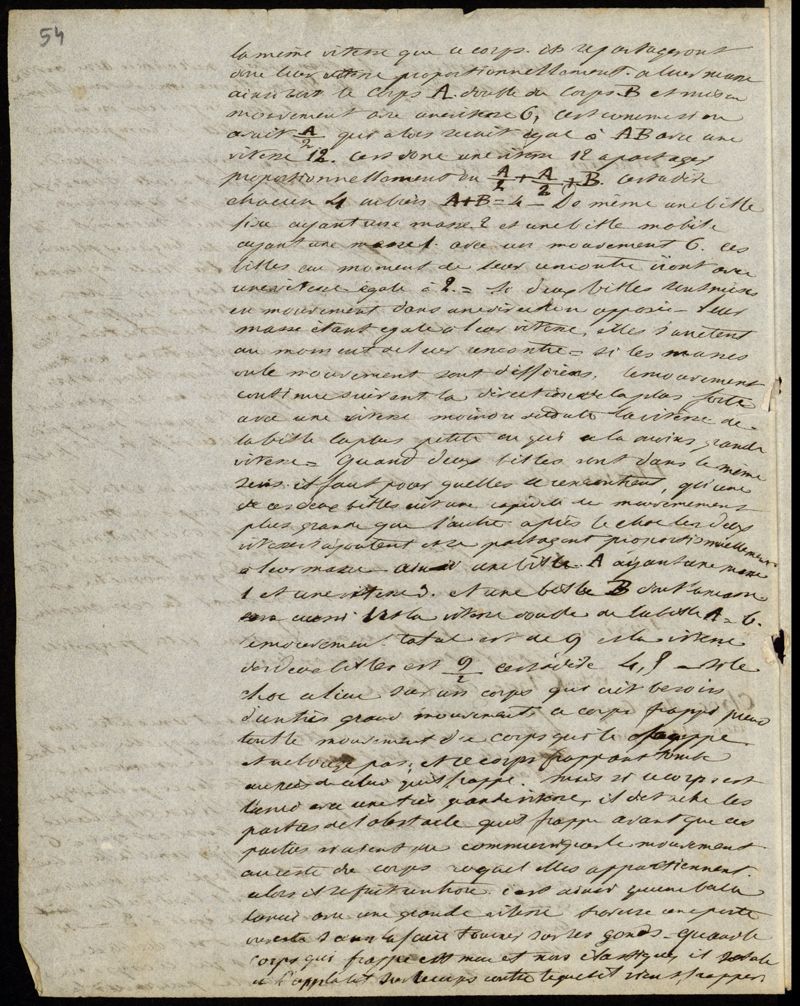 54
la même vitesse que ce corps. ils se partageront
donc leur vitesse proportionnellement à leur masse
ainsi soit le corps A double du corps B et mis en
mouvement avec une vitesse 6, c'est comme si on
avait A/2 qui alors serait égal à AB avec une
vitesse 12. c'est donc une vitesse 12 à partager
proportionnellement au A/2 + A/2 + B. c'est à dire
chacun 4 alors A+B = 4 — De même une bille
fixe ayant une masse 2 et une bille mobile
ayant une masse 1. avec un mouvement 6. ces
billes au moment de leur rencontre iront avec
une vitesse égale à 2. = Si deux billes sont mises
en mouvement dans une direction opposée — leur
masse étant égale à leur vitesse, elles s'arrêtent
au moment de leur rencontre = si les masses
ou le mouvement sont différens, le mouvement
continue suivant la direction de la plus forte
avec une vitesse moindre de toute la vitesse de
la bille la plus petite ou qui a la moins grande
vitesse = Quand deux billes sont dans le même
sens. il faut pour quelles se rencontrent, qu'une
de ces deux billes ait une rapidité de mouvement
plus grande que l'autre après le choc les deux
vitesses s'ajoutent et se partagent proportionnellement
à leur masse ainsi une bille A ayant une masse
1 et une vitesse 3. et une bille B dont la masse
sera aussi 1 et la vitesse double de la bille A = 6.
le mouvement total est de 9 et la vitesse
des deux billes est 9/2 c'est à dire 4,5 — Si le
choc a lieu sur un corps qui ait besoin
d'un très grand mouvement, ce corps frappé prend
tout le mouvement du corps qui le frappe
et ne bouge pas, et ce corps frappant tombe
auprès de celui qu'il frappe. Mais si ce corps est
lancé avec une très grande vitesse, il détache les
parties de l'obstacle qu'il frappe avant que ces
parties aient pu communiquer le mouvement
au reste du corps auquel elles appartiennent.
alors il se fait un trou. c'est ainsi qu'une balle
lancée avec une grande vitesse traverse une porte
ouverte sans la faire tourner sur ses gonds — Quand le
corps qui frappe est mou et non élastique, il
et s'applatit sur le corps contre lequel il vient frapper